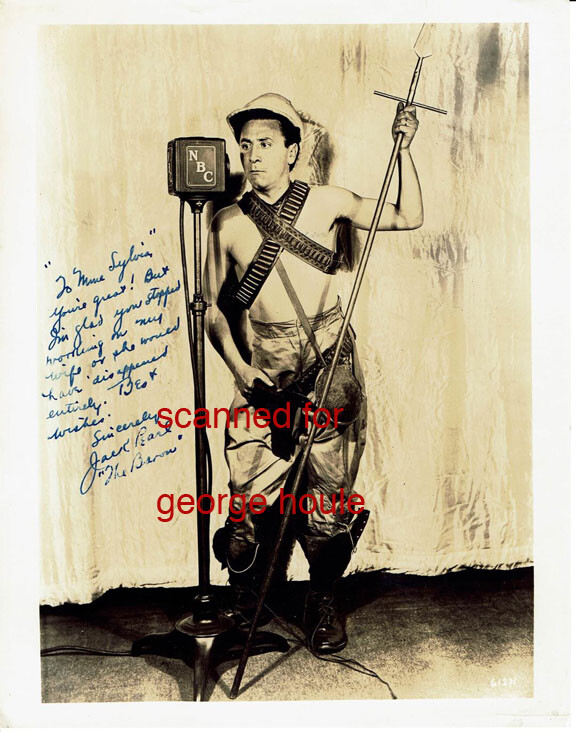 NBC
"To Mme Sylvia"
You're great! But
I'm glad you stopped
working on my
wife or she would
have disappeared
entirely. Best
wishes.
Sincerely
Jack Pearl
"The Baron"
scanned for
george houle